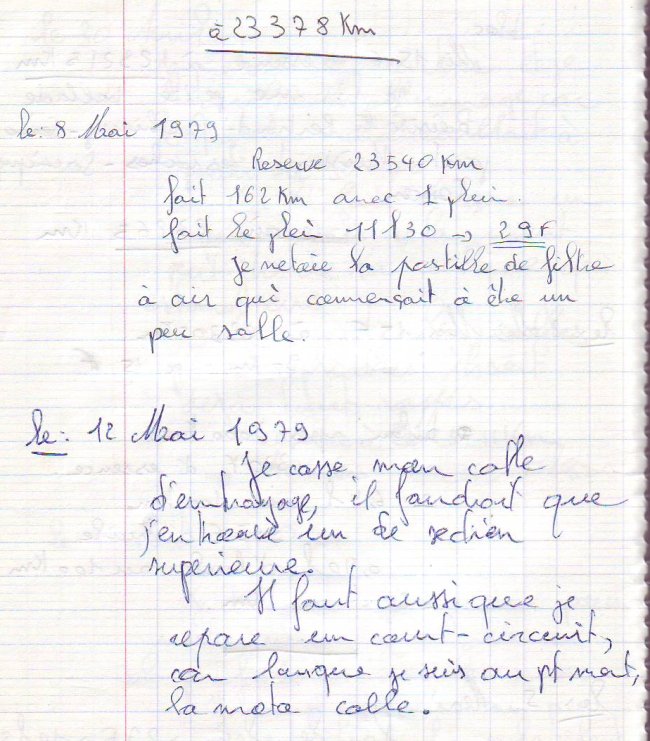 à 23378 Km
le: 8 Mai 1979
Reserve 23540 Km
fait 162 Km avec 1 plein.
fait le plein 11l30 → 29F
Je netoie la pastille de filtre
à air qui commençait à être un
peu salle.
le: 12 Mai 1979
Je casse mon cable
d'embrayage, il faudrait que
j'en trouve un de section
superieure.
Il faut aussi que je
repare un court-circuit,
car lorsque je suis au pt mort,
la moto calle.